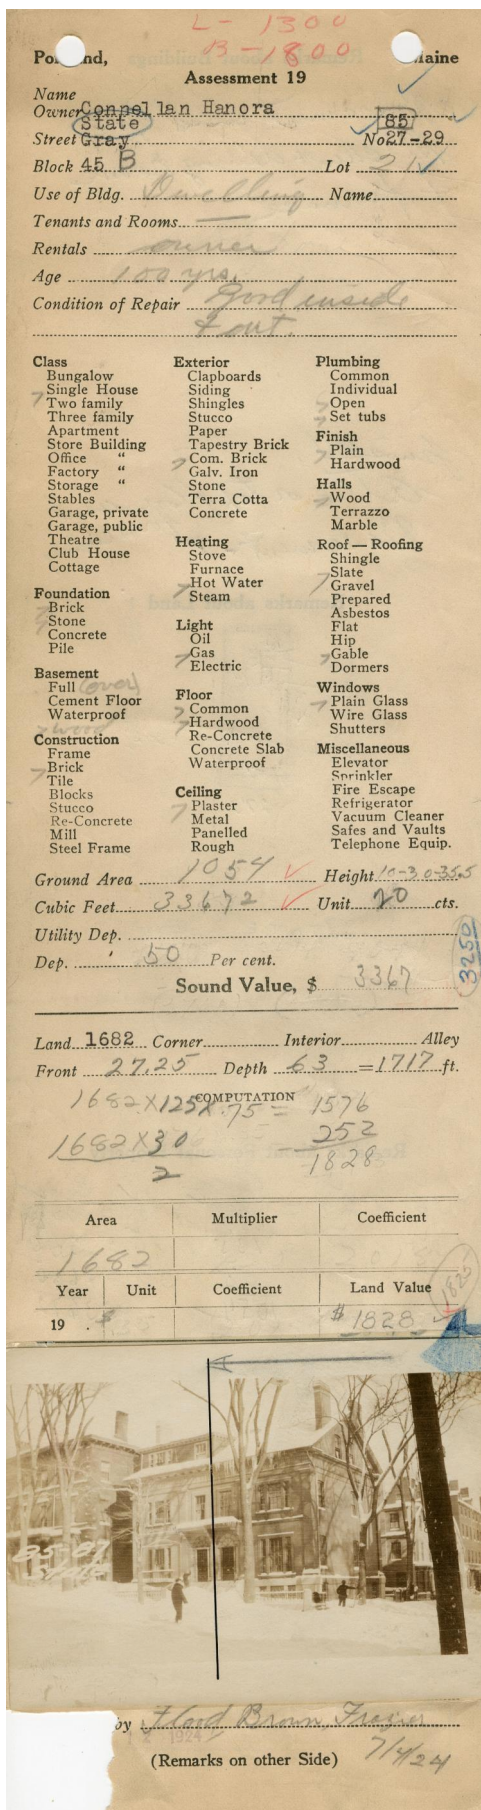 L- 1300
B-1800
Po nd, Maine
Assessment 19
Name
Owner Connellan Hanora
State 85
Street Gray No 27-29
Block 45 B Lot 21
Use of Bldg. Dwelling Name
Tenants and Rooms —
Rentals owner
Age 100 yrs.
Condition of Repair Good inside
& out.
Class
Bungalow
Single House
Two family
Three family
Apartment
Store Building
Office "
Factory "
Storage "
Stables
Garage, private
Garage, public
Theatre
Club House
Cottage
Foundation
Brick
Stone
Concrete
Pile
Basement
Full (over)
Cement Floor
Waterproof
wood
Construction
Frame
Brick
Tile
Blocks
Stucco
Re-Concrete
Mill
Steel Frame
Exterior
Clapboards
Siding
Shingles
Stucco
Paper
Tapestry Brick
Com. Brick
Galv. Iron
Stone
Terra Cotta
Concrete
Heating
Stove
Furnace
Hot Water
Steam
Light
Oil
Gas
Electric
Floor
Common
Hardwood
Re-Concrete
Concrete Slab
Waterproof
Ceiling
Plaster
Metal
Panelled
Rough
Plumbing
Common
Individual
Open
Set tubs
Finish
Plain
Hardwood
Halls
Wood
Terrazzo
Marble
Roof — Roofing
Shingle
Slate
Gravel
Prepared
Asbestos
Flat
Hip
Gable
Dormers
Windows
Plain Glass
Wire Glass
Shutters
Miscellaneous
Elevator
Sprinkler
Fire Escape
Refrigerator
Vacuum Cleaner
Safes and Vaults
Telephone Equip.
Ground Area 1054 Height 10-30-35.5
Cubic Feet 33672 Unit 20 cts.
Utility Dep.
3250
Dep. 50 Per cent.
Sound Value, $ 3367
Land 1682 Corner Interior Alley
Front 27.25 Depth 63 = 1717 ft.
COMPUTATION
1682 X 125 X .75 = 1576
1682 X 30 252
2 1828
Area Multiplier Coefficient
1682
1825
Year Unit Coefficient Land Value
19 $ $1828
A
85-87
State
by Flood, Brown, Frazier
1924
7/4/24
(Remarks on other Side)